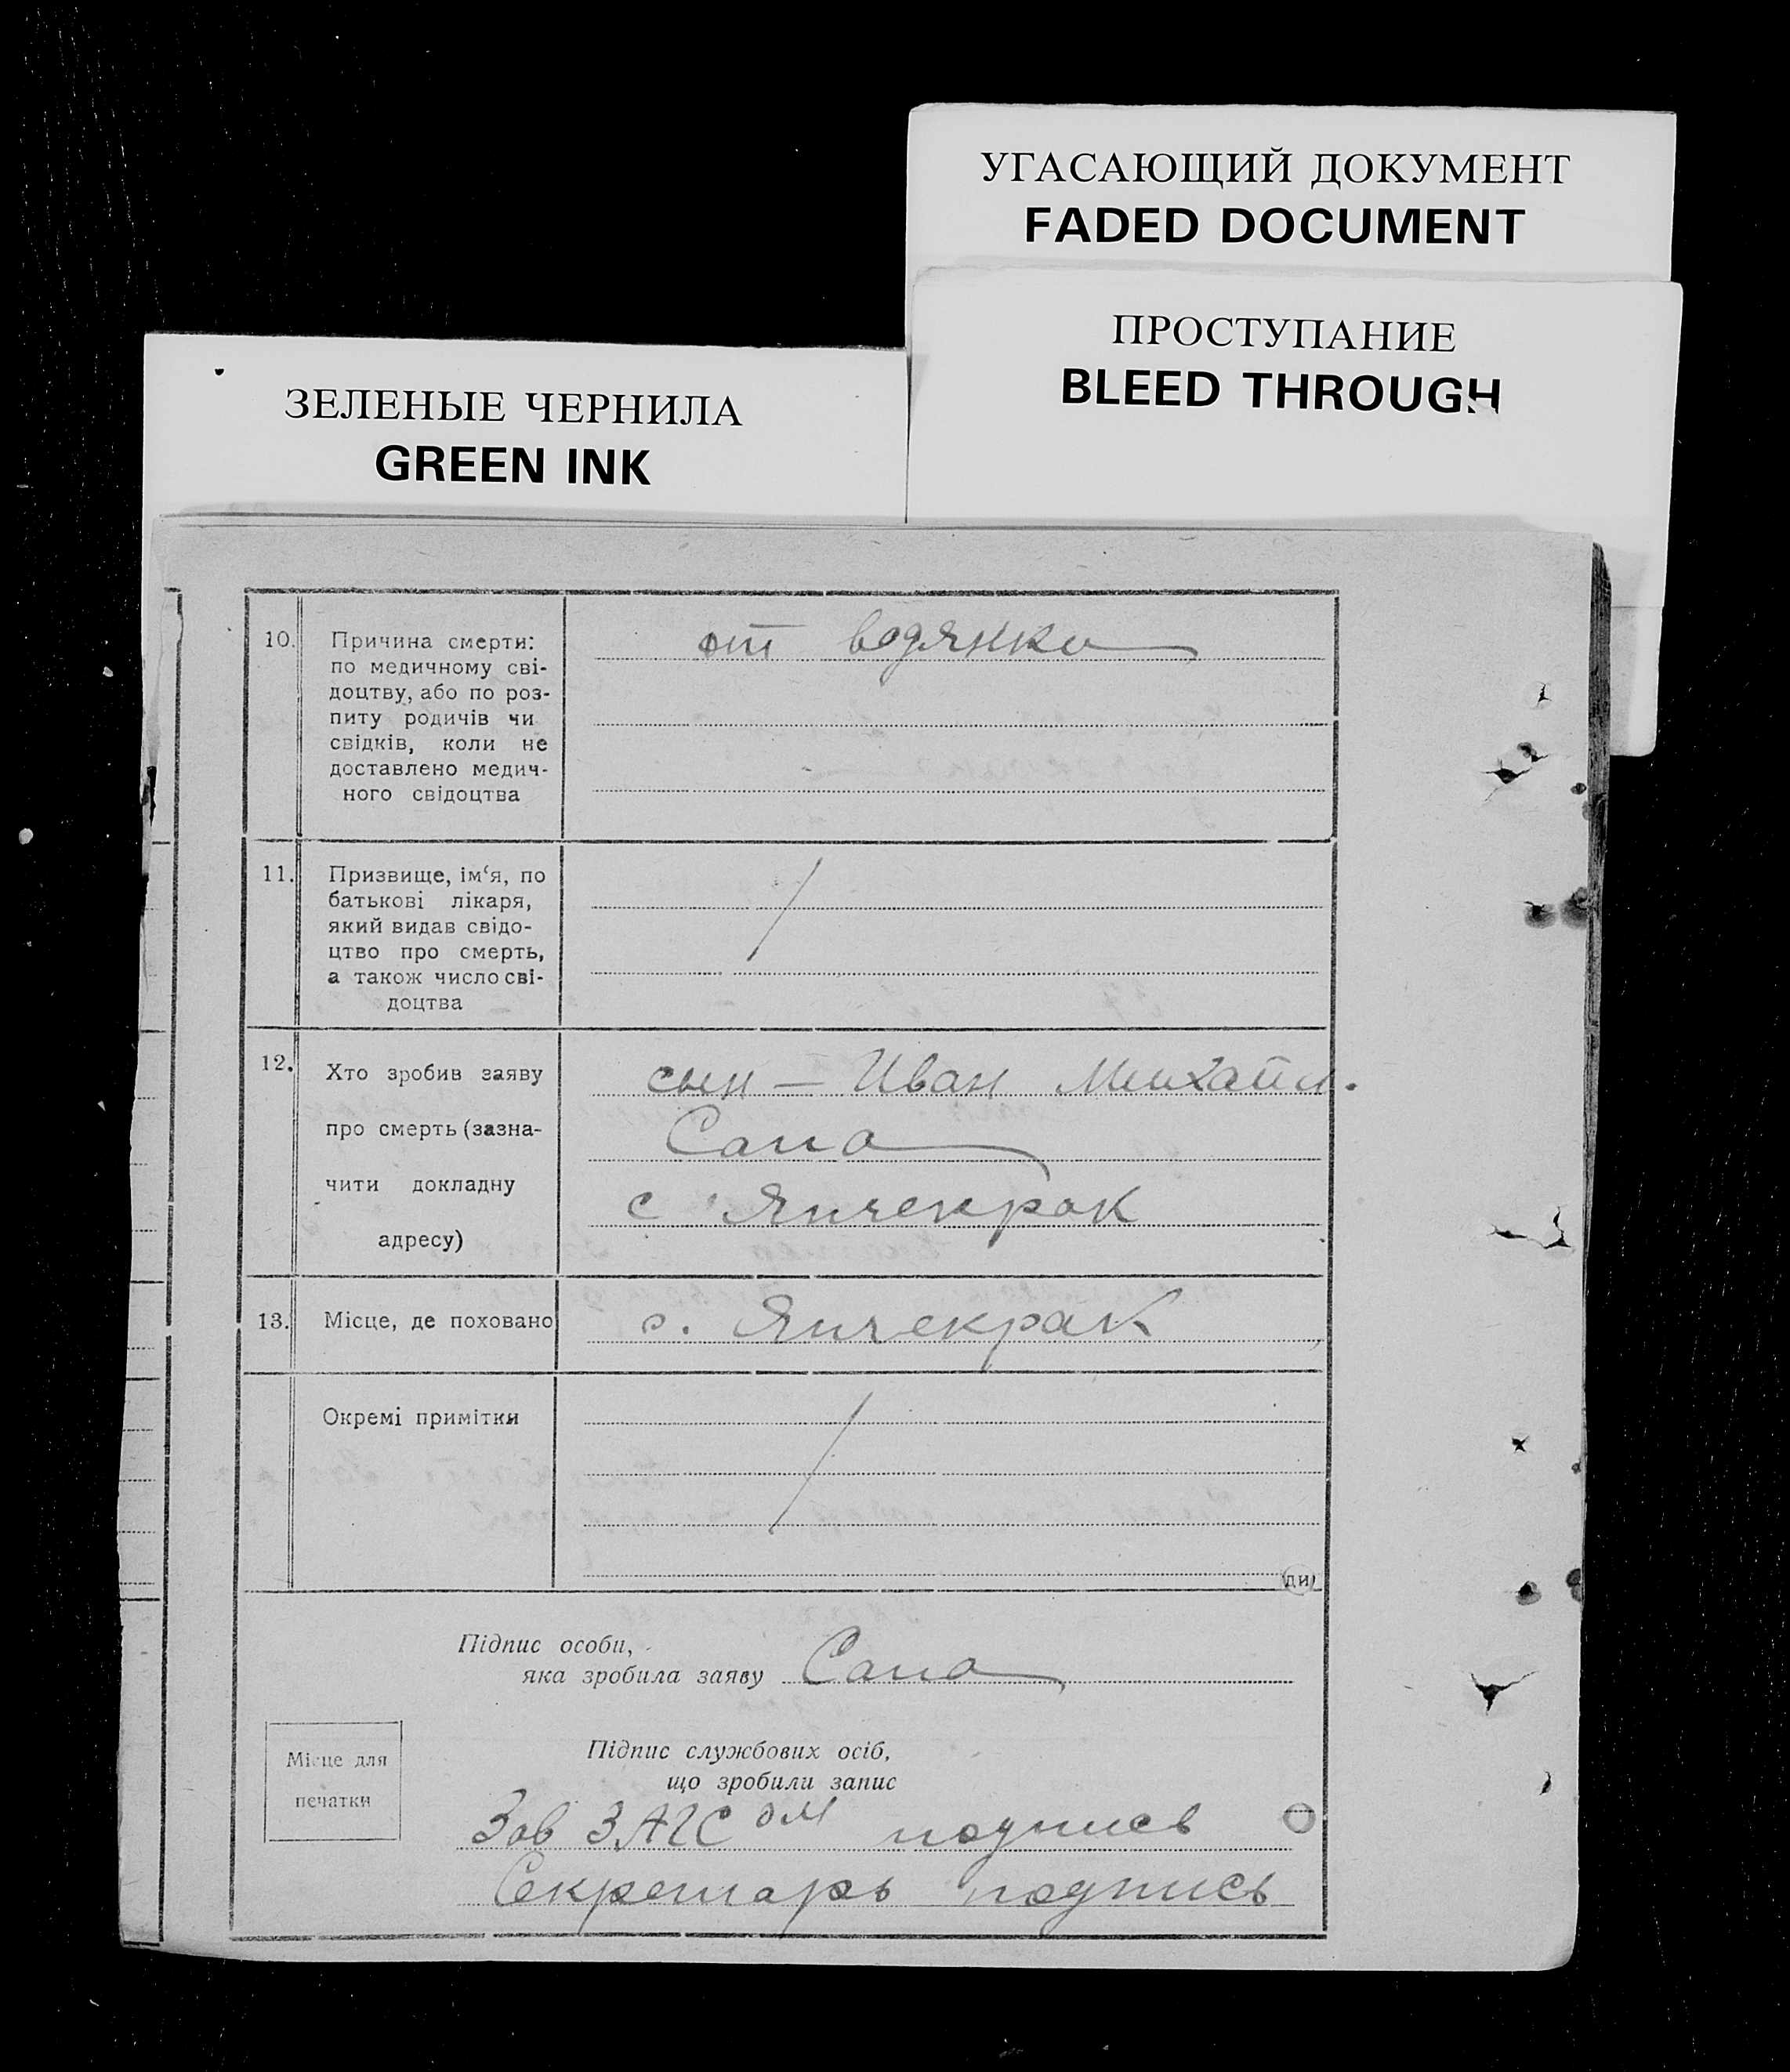 УГАСАЮЩИЙ ДОКУМЕНТ
FADED DOCUMENT
ПРОСТУПАНИЕ
BLEED THROUGH
ЗЕЛЕНЫЕ ЧЕРНИЛА
GREEN INK
10.
Причина смерти:
по медичному сві-
доцтву, або по роз-
питу родичів чи
свідків, коли не
доставлено медич-
ного свідоцтва
от водянки
11.
Призвище, ім‘я, по
батькові лікаря,
який видав свідо-
цтво про смерть,
а також число сві-
доцтва
/
12.
Хто зробив заяву
про смерть (зазна-
чити докладну
адресу)
сын — Иван Михайл.
Сапа
с Янчекрак
13.
Місце, де поховано
с. Янчекрак
Окремі примітки
/
ди
Підпис особи,
яка зробила заяву Сапа
Місце для
печатки
Підпис службових осіб,
що зробили запис
Зав ЗАГСом подпись
Секретарь подпись